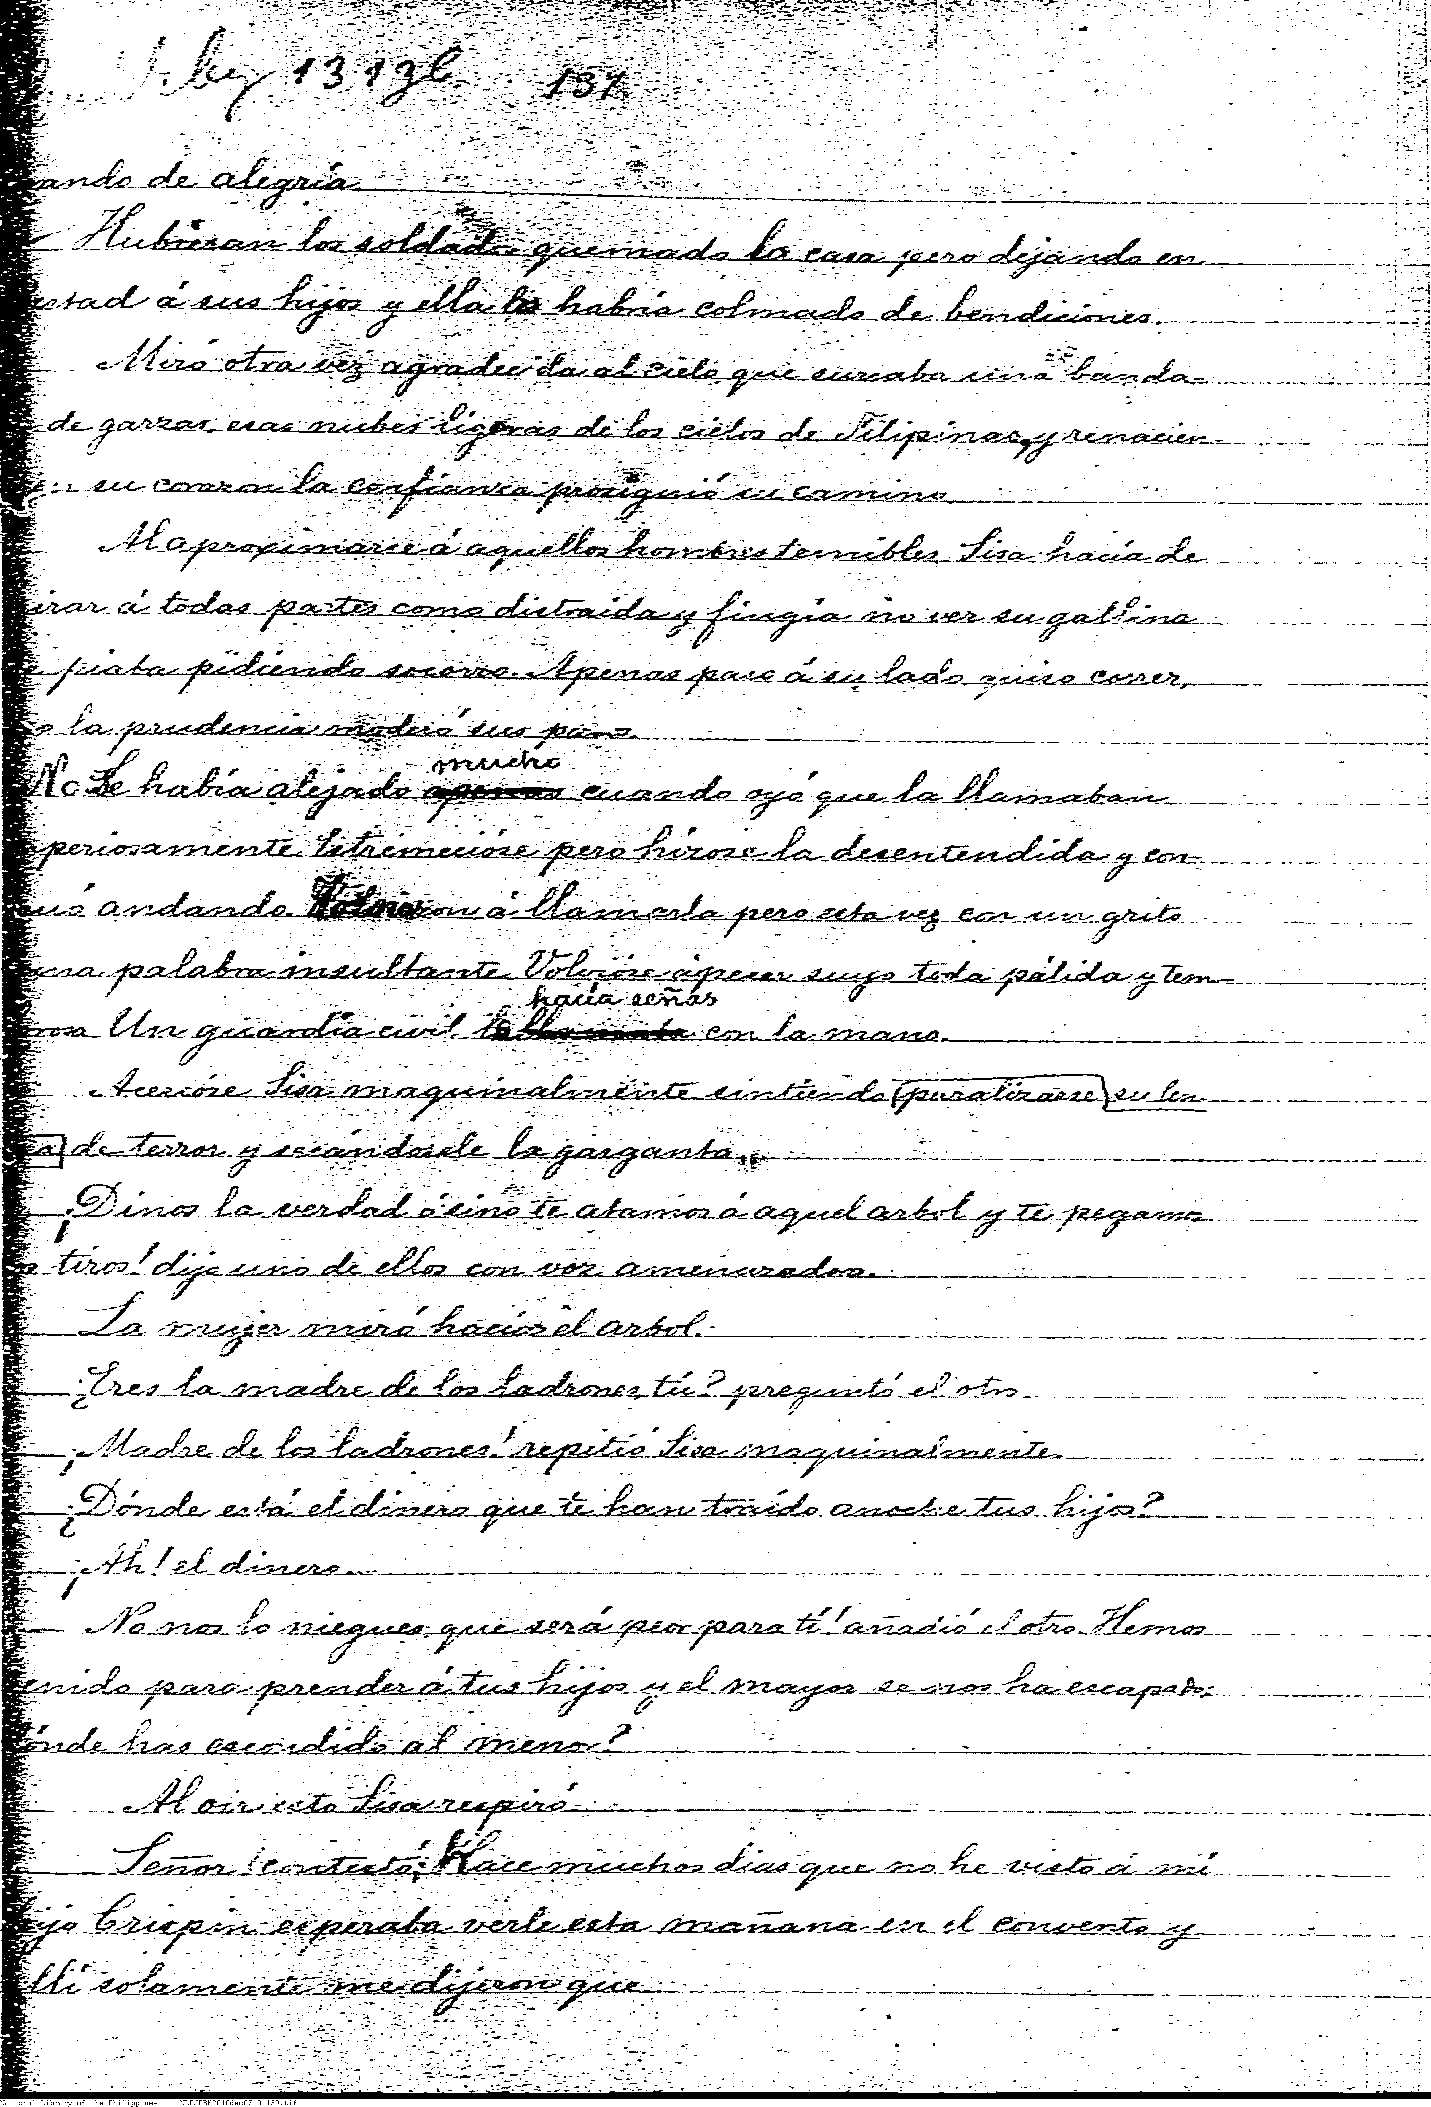 134
ando de alegría.
Hubieran los soldados quemado la casa pero dejando en
ertad á sus hijos y ella los habría colmado de bendiciones.
Miró otra vez agradecida al cielo que surcaba una banda-
de garzas, esas nubes ligeras de los cielos de Filipinas, y renacien-
en su corazon la confianza prosiguió su camino.
Al aproximarse á aquellos hombres temibles Sisa hacía de
irar á todas partes como distraida y fingía no ver su gallina
e piaba pidiendo socorro. Apenas paso á su lado quiso correr,
o la prudencia moderó sus pasos.
mucho
No Se había alejado apenas cuando oyó que la llamaban
periosamente. Estremecióse pero hízose la desentendida y con-
uó andando. Volvieron á llamarla pero esta vez con un grito
una palabra insultante. Volvióse á pesar suyo toda pálida y tem-
hacía señas
rosa Un guardia civil la llamaba con la mano.
Acercóse Sisa maquinalmente sintiendo paralizarse su len
ua de terror y secándosele la garganta.
¡Dinos la verdad ó sinó te atamos á aquel arbol y te pegamos
s tiros! dijo uno de ellos con voz amenazadora.
La mujer miró hacia el arbol.
¿Eres la madre de los ladrones, tú? preguntó el otro.
¡Madre de los ladrones! repitió Sisa maquinalmente.
¿Dónde está el dinero que te han traido anoche tus hijos?
¡Ah! el dinero..
No nos lo niegues que será peor para tí! añadió el otro. Hemos
enido para prender á tus hijos y el mayor se nos ha escapado;
ónde has escondido al menor?
Al oir esto Sisa respiró
Señor! contestó; Hace muchos dias que no he visto á mi
ijo Crispin: esperaba verle esta mañana en el convento y
llí solamente me dijeron que